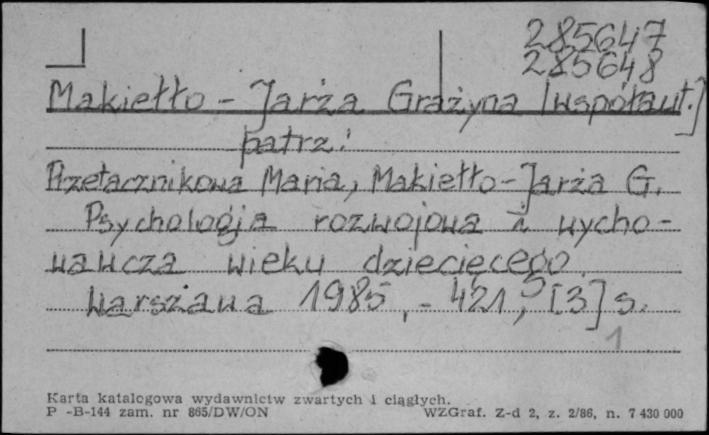 285647
285648
Makiełło - Jarża Grażyna [współaut.]
patrz:
Przetacznikowa Maria, Makiełło-Jarża G.
Psychologia rozwojowa i wycho-
wawcza wieku dziecięcego.
Warszawa 1985, - 421, [3] s.
1
Karta katalogowa wydawnictw zwartych i ciągłych.
P -B-144 zam. nr 865/DW/ON WZGraf. Z-d 2, z. 2/86, n. 7 430 000